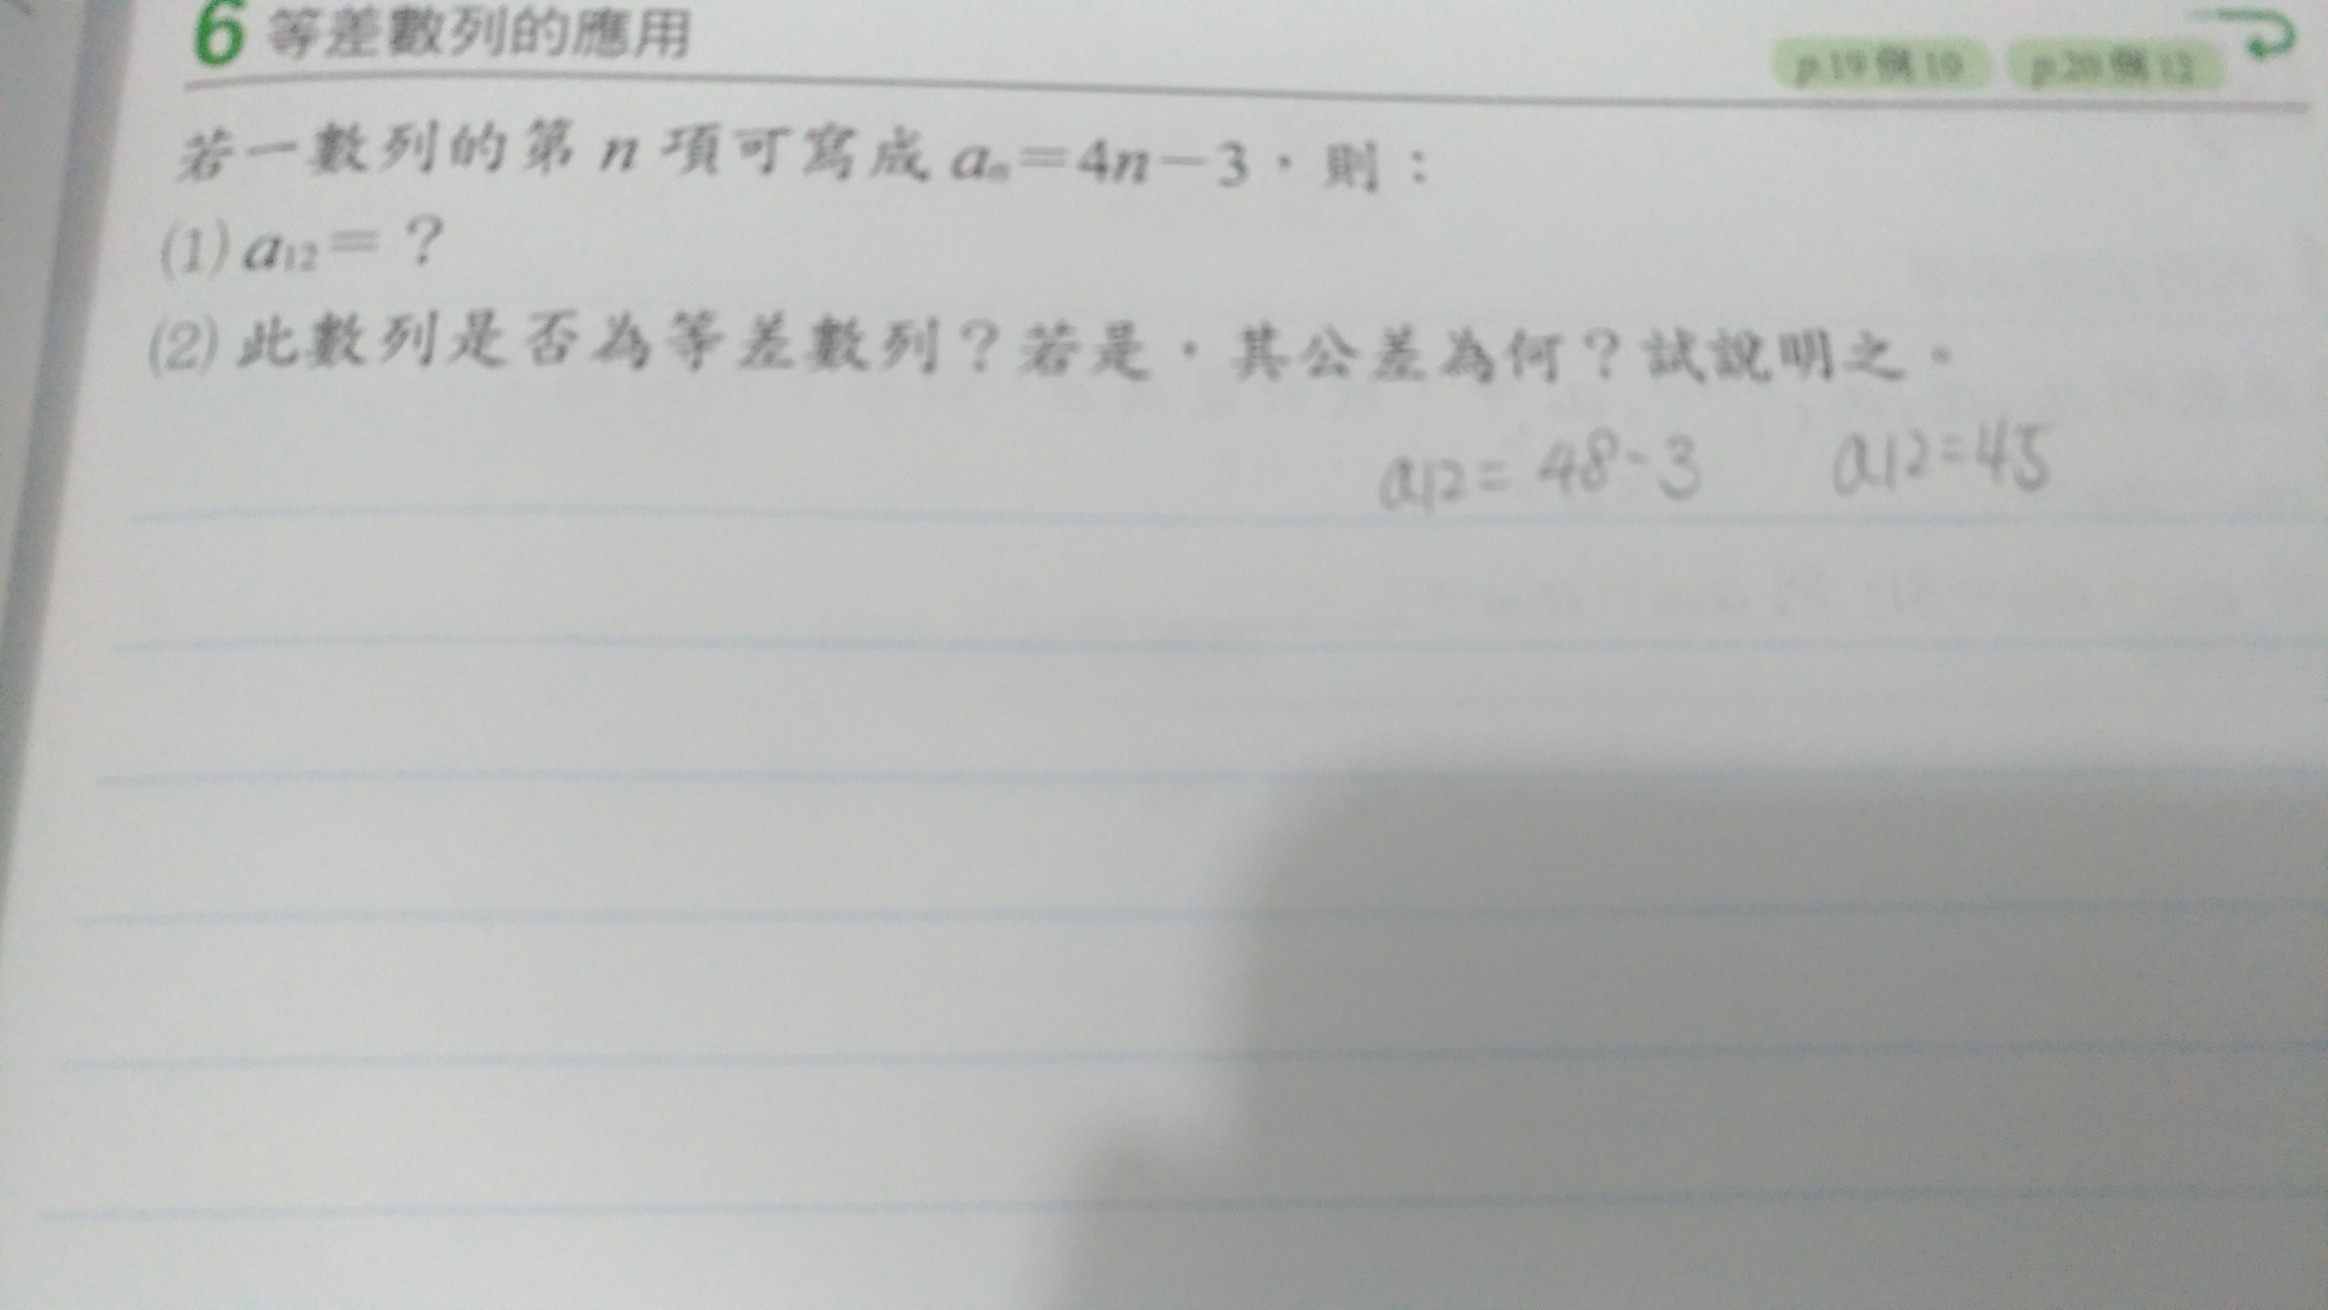 6 等差數列的應用
p.19例10 p.20例12
若一數列的第 n 項可寫成 aₙ=4n-3,則:
(1) a₁₂=?
(2) 此數列是否為等差數列?若是,其公差為何?試說明之。
a12=48-3 a12=45